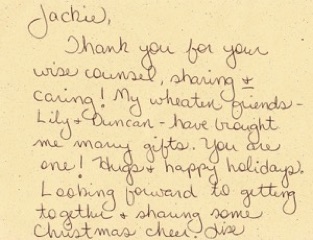 Jackie,
Thank you for your
wise counsel, sharing &
caring! My wheaten friends -
Lily & Duncan - have brought
me many gifts. You are
one! Hugs & happy holidays.
Looking forward to getting
together & sharing some
Christmas cheer. Lise